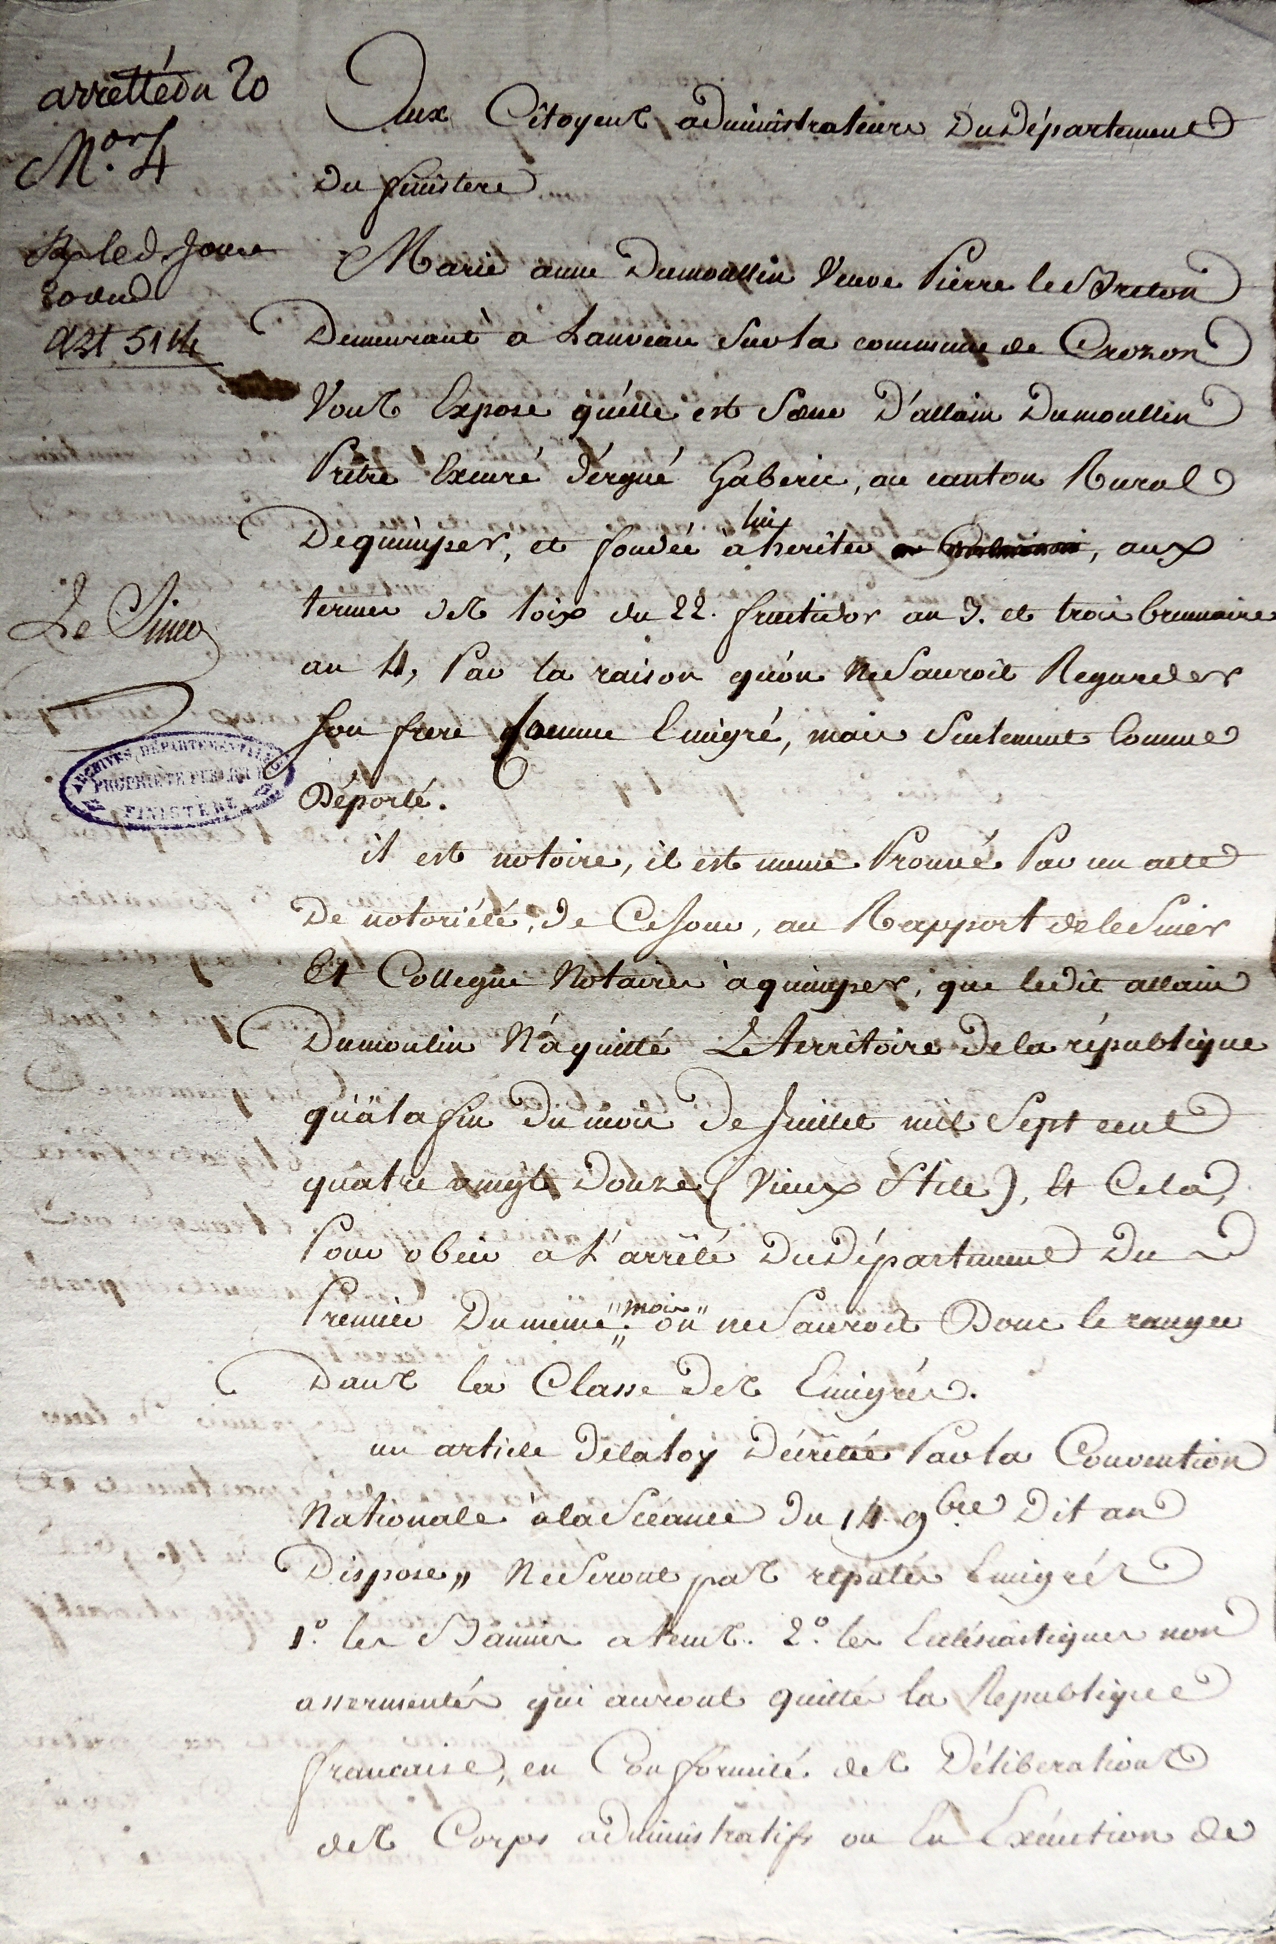 arretté du 20
Nor 4
Le Siner
ARCHIVES DÉPARTEMENTALES
PROPRIÉTÉ PUBLIQUE
FINISTÈRE
Aux Citoyens administrateurs Du Département
Du finistere
Marie anne Dumoullin Veuve Pierre le Breton
Demeurant à Lauveau Sur la commune de Crozon
Vous Expose qu'elle est Sœur D'allain Dumoullin
Prêtre Excuré d'ergué Gaberic, au canton Rural
De quimper, et fondée à lui heriter, aux
termes des loix du 22. fructidor an 3. et trois brumaire
an 4, Par la raison qu'on ne Sauroit Regarder
Son frere Comme Emigré, mais Seulement Comme
Déporté.
il est notoire, il est meme Prouvé Par un acte
De notoriété, de Ce Jour, au Rapport de le Siner
Et Collegue Notaires à quimper, que ledit allain
Dumoulin N'a quitté Le territoire de la république
qu'à la fin du mois de Juillet mil Sept cent
quatre vingt Douze (Vieux Stile), Et Cela,
Pour obeir a L'arrêté Du Département Du
Premier Du meme "mois" on ne Sauroit Donc le ranger
Dans la Classe Des Emigrés.
un article de la loy Décrétée Par la Convention
Nationale à la Séance du 14 9bre Dit an
Dispose" Ne Seront pas reputés Emigrés
1.º les Bannis a tems. 2.º les Ecclésiastiques non
assermentés qui auront quitté la Republique
francaise, en Conformité des Délibérations
des Corps administratifs ou En Exécution de